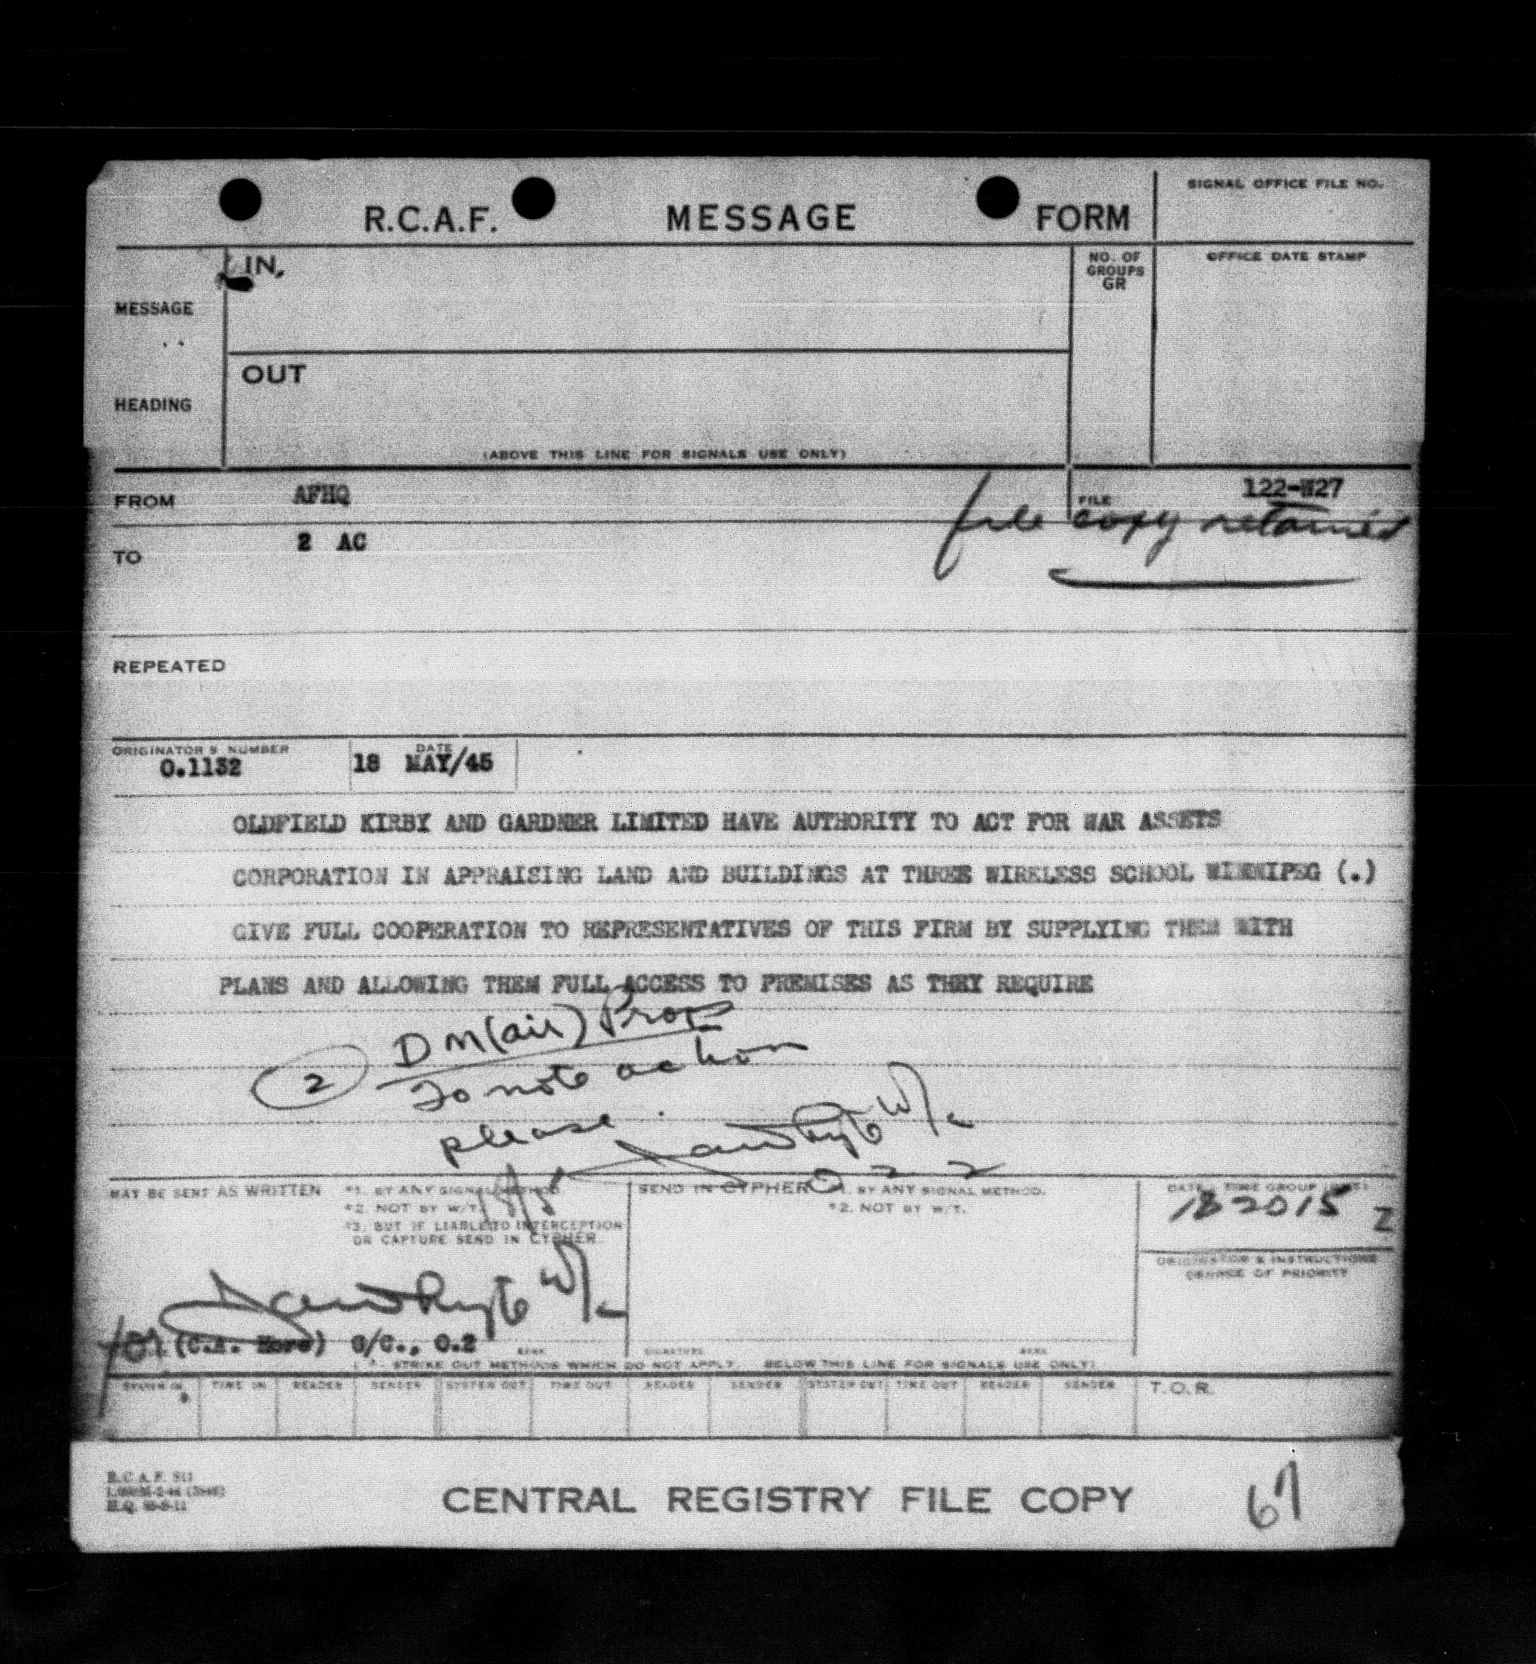 SIGNAL OFFICE FILE NO.
R.C.A.F. MESSAGE FORM
IN.
NO. OF GROUPS GR
OFFICE DATE STAMP
MESSAGE
OUT
HEADING
(ABOVE THIS LINE FOR SIGNALS USE ONLY)
FROM AFHQ FILE 122-W27
file copy retained
TO 2 AC
REPEATED
ORIGINATOR'S NUMBER DATE
O.1132 18 MAY/45
OLDFIELD KIRBY AND GARDNER LIMITED HAVE AUTHORITY TO ACT FOR WAR ASSETS
CORPORATION IN APPRAISING LAND AND BUILDINGS AT THREE WIRELESS SCHOOL WINNIPEG (.)
GIVE FULL COOPERATION TO REPRESENTATIVES OF THIS FIRM BY SUPPLYING THEM WITH
PLANS AND ALLOWING THEM FULL ACCESS TO PREMISES AS THEY REQUIRE
2 DM(air) Prop
To note action
please.
W/C
O 2-2
18/5
MAY BE SENT AS WRITTEN *1. BY ANY SIGNAL METHOD. SEND IN CYPHER *1. BY ANY SIGNAL METHOD. DATE, TIME GROUP
*2. NOT BY W/T. *2. NOT BY W/T. 182015 Z
*3. BUT IF LIABLE TO INTERCEPTION
OR CAPTURE SEND IN CYPHER.
ORIGINATOR'S INSTRUCTIONS
DEGREE OF PRIORITY
W/C
for (C.A. ) G/C., O.2 RANK SIGNATURE RANK
(*- STRIKE OUT METHODS WHICH DO NOT APPLY. BELOW THIS LINE FOR SIGNALS USE ONLY)
SYSTEM IN TIME IN READER SENDER SYSTEM OUT TIME OUT READER SENDER SYSTEM OUT TIME OUT READER SENDER T.O.R.
R.C.A.F. 511
CENTRAL REGISTRY FILE COPY 67